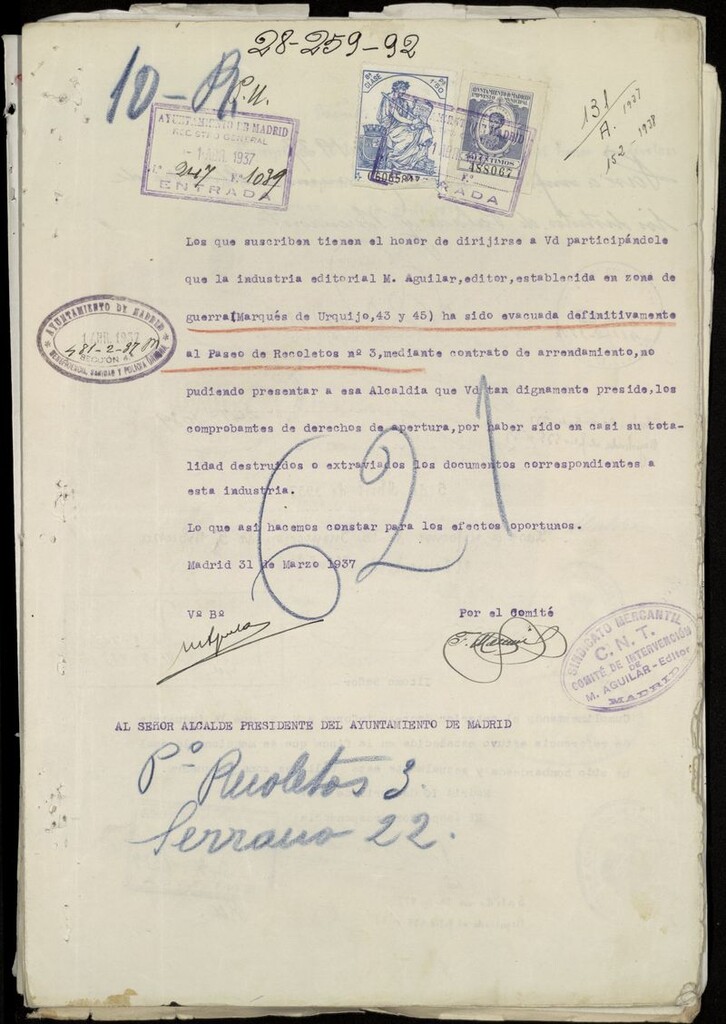 28-259-92
10-
R.U.
AYUNTAMIENTO DE MADRID
REGISTRO GENERAL
1 ABR. 1937
247 1039
ENTRADA
8ª CLASE
AYUNTAMIENTO DE MADRID
188067
131
A. 1937
152 - 1938
Los que suscriben tienen el honor de dirijirse a Vd participándole
que la industria editorial M. Aguilar,editor,establecida en zona de
guerra(Marqués de Urquijo,43 y 45) ha sido evacuada definitivamente
al Paseo de Recoletos nº 3,mediante contrato de arrendamiento,no
pudiendo presentar a esa Alcaldia que Vd tan dignamente preside,los
comprobamtes de derechos de apertura,por haber sido en casi su tota-
lidad destruidos o extraviados los documentos correspondientes a
esta industria.
Lo que asi hacemos constar para los efectos oportunos.
Madrid 31 de Marzo 1937
AYUNTAMIENTO DE MADRID
1 ABR. 1937
SECCIÓN
BENEFICENCIA, SANIDAD Y POLICIA URBANA
621
Vº Bº
Por el Comité
SINDICATO MERCANTIL
C. N. T.
COMITÉ DE INTERVENCIÓN
DE
M. AGUILAR-Editor
MADRID
AL SEÑOR ALCALDE PRESIDENTE DEL AYUNTAMIENTO DE MADRID
Pº Recoletos 3
Serrano 22.